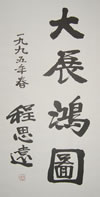 大展鴻圖
一九九五年春
程思遠